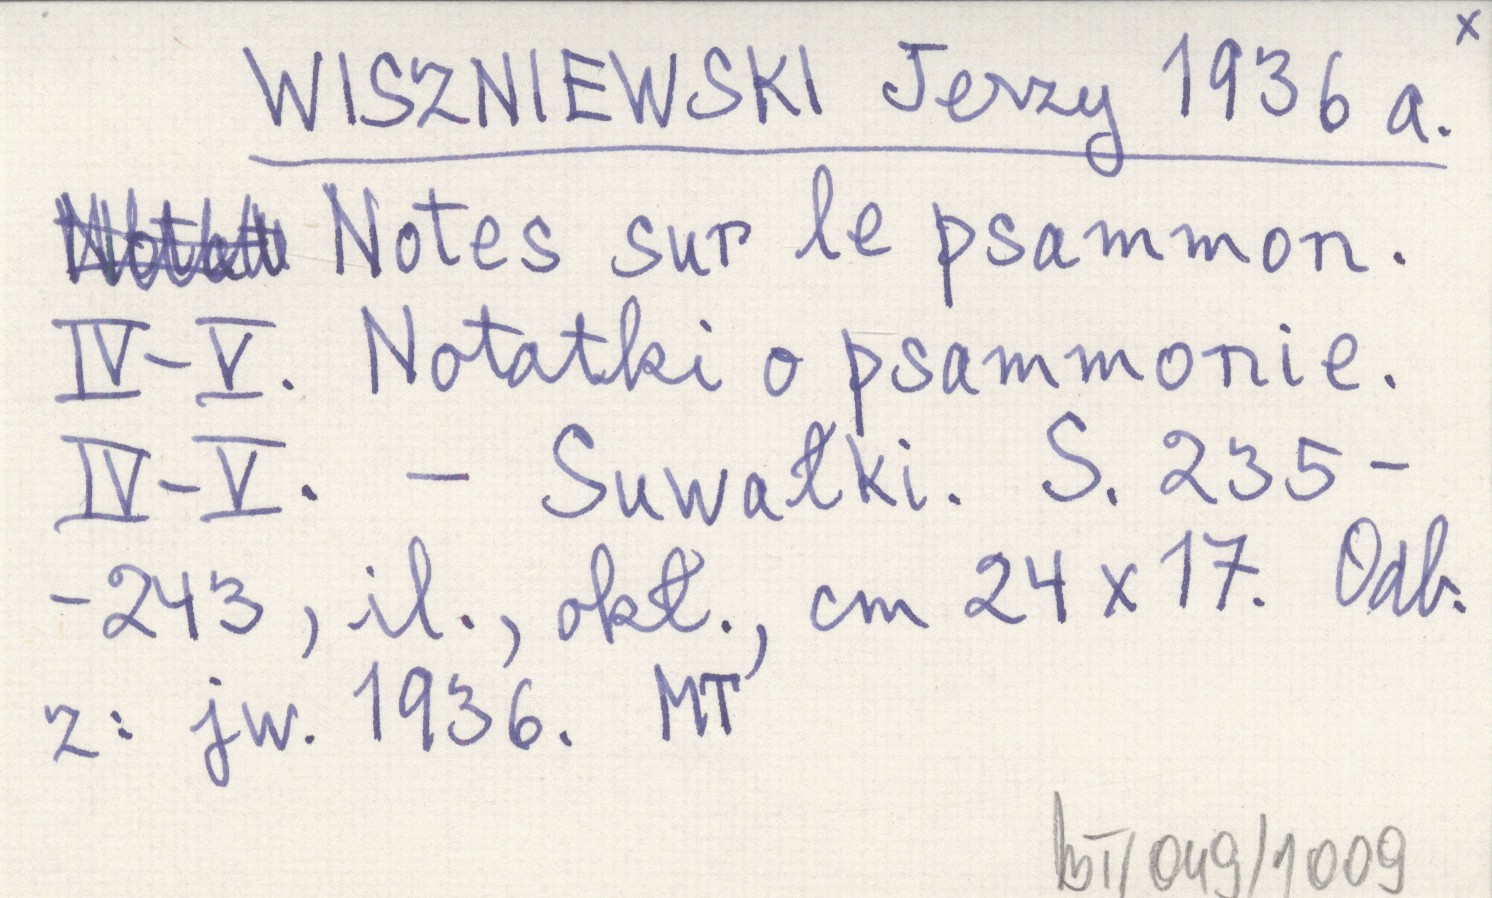 x
WISZNIEWSKI Jerzy 1936 a.
Notes sur le psammon.
IV-V. Notatki o psammonie.
IV-V. - Suwałki. S. 235-
-243, il., okł., cm 24 x 17. Odb.
z: jw. 1936. MT
/049/1009